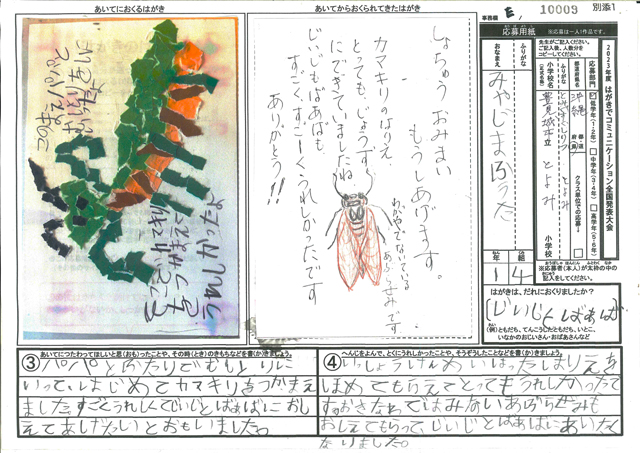 あいてにおくるはがき
このまえパパと
むしとりに
いきました
カマキリを
つかまえて
うれしかったよ
あいてからおくられてきたはがき
しょちゅうおみまい
もうしあげます。
カマキリのはりえ、
とってもじょうずに
にできていましたね
じぃじもばぁばも
すごくすごーくうれしかったです
ありがとう!!
わかやまでないている
あぶらぜみです
事務欄 E
10009
別添1
応募用紙
※応募は一人1作品です。
先生がご記入ください。
ご記入後、人数分を
コピーしてください。
2023年度 はがきでコミュニケーション全国発表大会
応募部門
低学年(1・2年)
中学年(3・4年)
高学年(5・6年)
都道府県名
沖縄
都 道 府 県
クラス単位での応募
ふりがな
とみぐすくしりつ とよみ
小学校名
(正式名称)
豊見城市立 とよみ 小学校
ふりがな
おなまえ
みやじまふうた
年 組
1 4
※応募者(本人)が太枠の中の
記入をしてください。
はがきは、だれにおくりましたか?
(じいじとばあば)
(例)ともだち、てんこうしたともだち、いとこ、
いなかのおじいさん・おばあさんなど
③ あいてにつたわってほしいと思(おも)ったことや、その時(とき)のきもちなどを書(か)きましょう。
パパとふたりでむしとりに
いって、はじめてカマキリをつかまえ
ました。すごくうれしくてじいじとばあばにおし
えてあげたいとおもいました。
④ へんじをよんで、とくにうれしかったことや、そうぞうしたことなどを書(か)きましょう。
いっしょうけんめいはったはりえを
ほめてもらえてとってもうれしかったで
す。おきなわではみないあぶらぜみも
おしえてもらってじいじとばあばにあいたく
なりました。